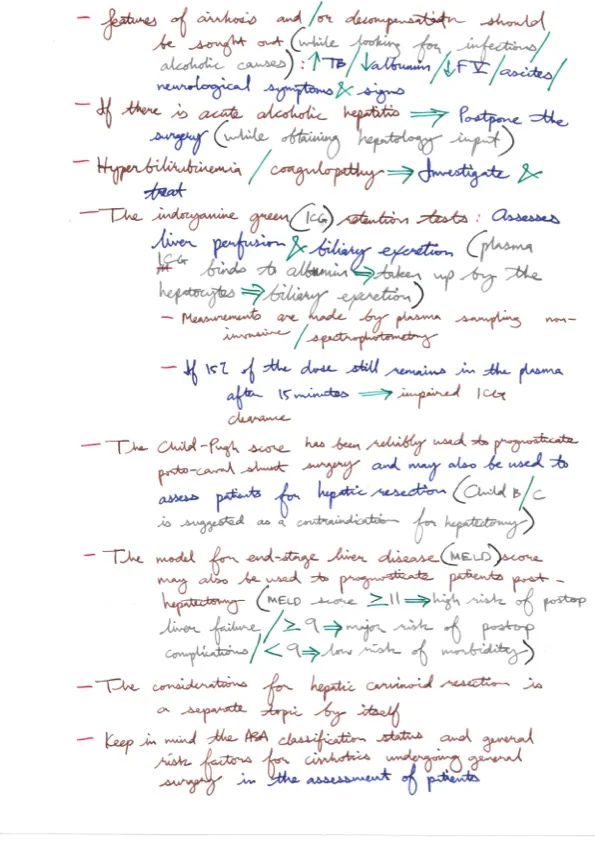 - features of cirrhosis and/or decompensation should
be sought out (while looking for infections/
alcoholic causes): ↑TB/↓albumin/↓FV/ascites/
neurological symptoms & signs
- If there is acute alcoholic hepatitis ⇒ Postpone the
surgery (while obtaining hepatology input)
- Hyperbilirubinemia/coagulopathy ⇒ Investigate &
treat
- The indocyanine green (ICG) retention tests: Assesses
liver perfusion & biliary excretion (plasma
ICG binds to albumin ⇒ taken up by the
hepatocytes ⇒ biliary excretion)
- Measurements are made by plasma sampling non-
invasive/spectrophotometry
- If 15% of the dose still remains in the plasma
after 15 minutes ⇒ impaired ICG
clearance
- The Child-Pugh score has been reliably used to prognosticate
porto-caval shunt surgery and may also be used to
assess patients for hepatic resection (Child B/C
is suggested as a contraindication for hepatectomy)
- The model for end-stage liver disease (MELD) score
may also be used to prognosticate patients post-
hepatectomy (MELD score ≥11 ⇒ high risk of postop
liver failure/≥9 ⇒ major risk of postop
complications/<9 ⇒ low risk of morbidity)
- The considerations for hepatic carcinoid resection is
a separate topic by itself
- Keep in mind the ASA classification status and general
risk factors for cirrhotics undergoing general
surgery in the assessment of patients